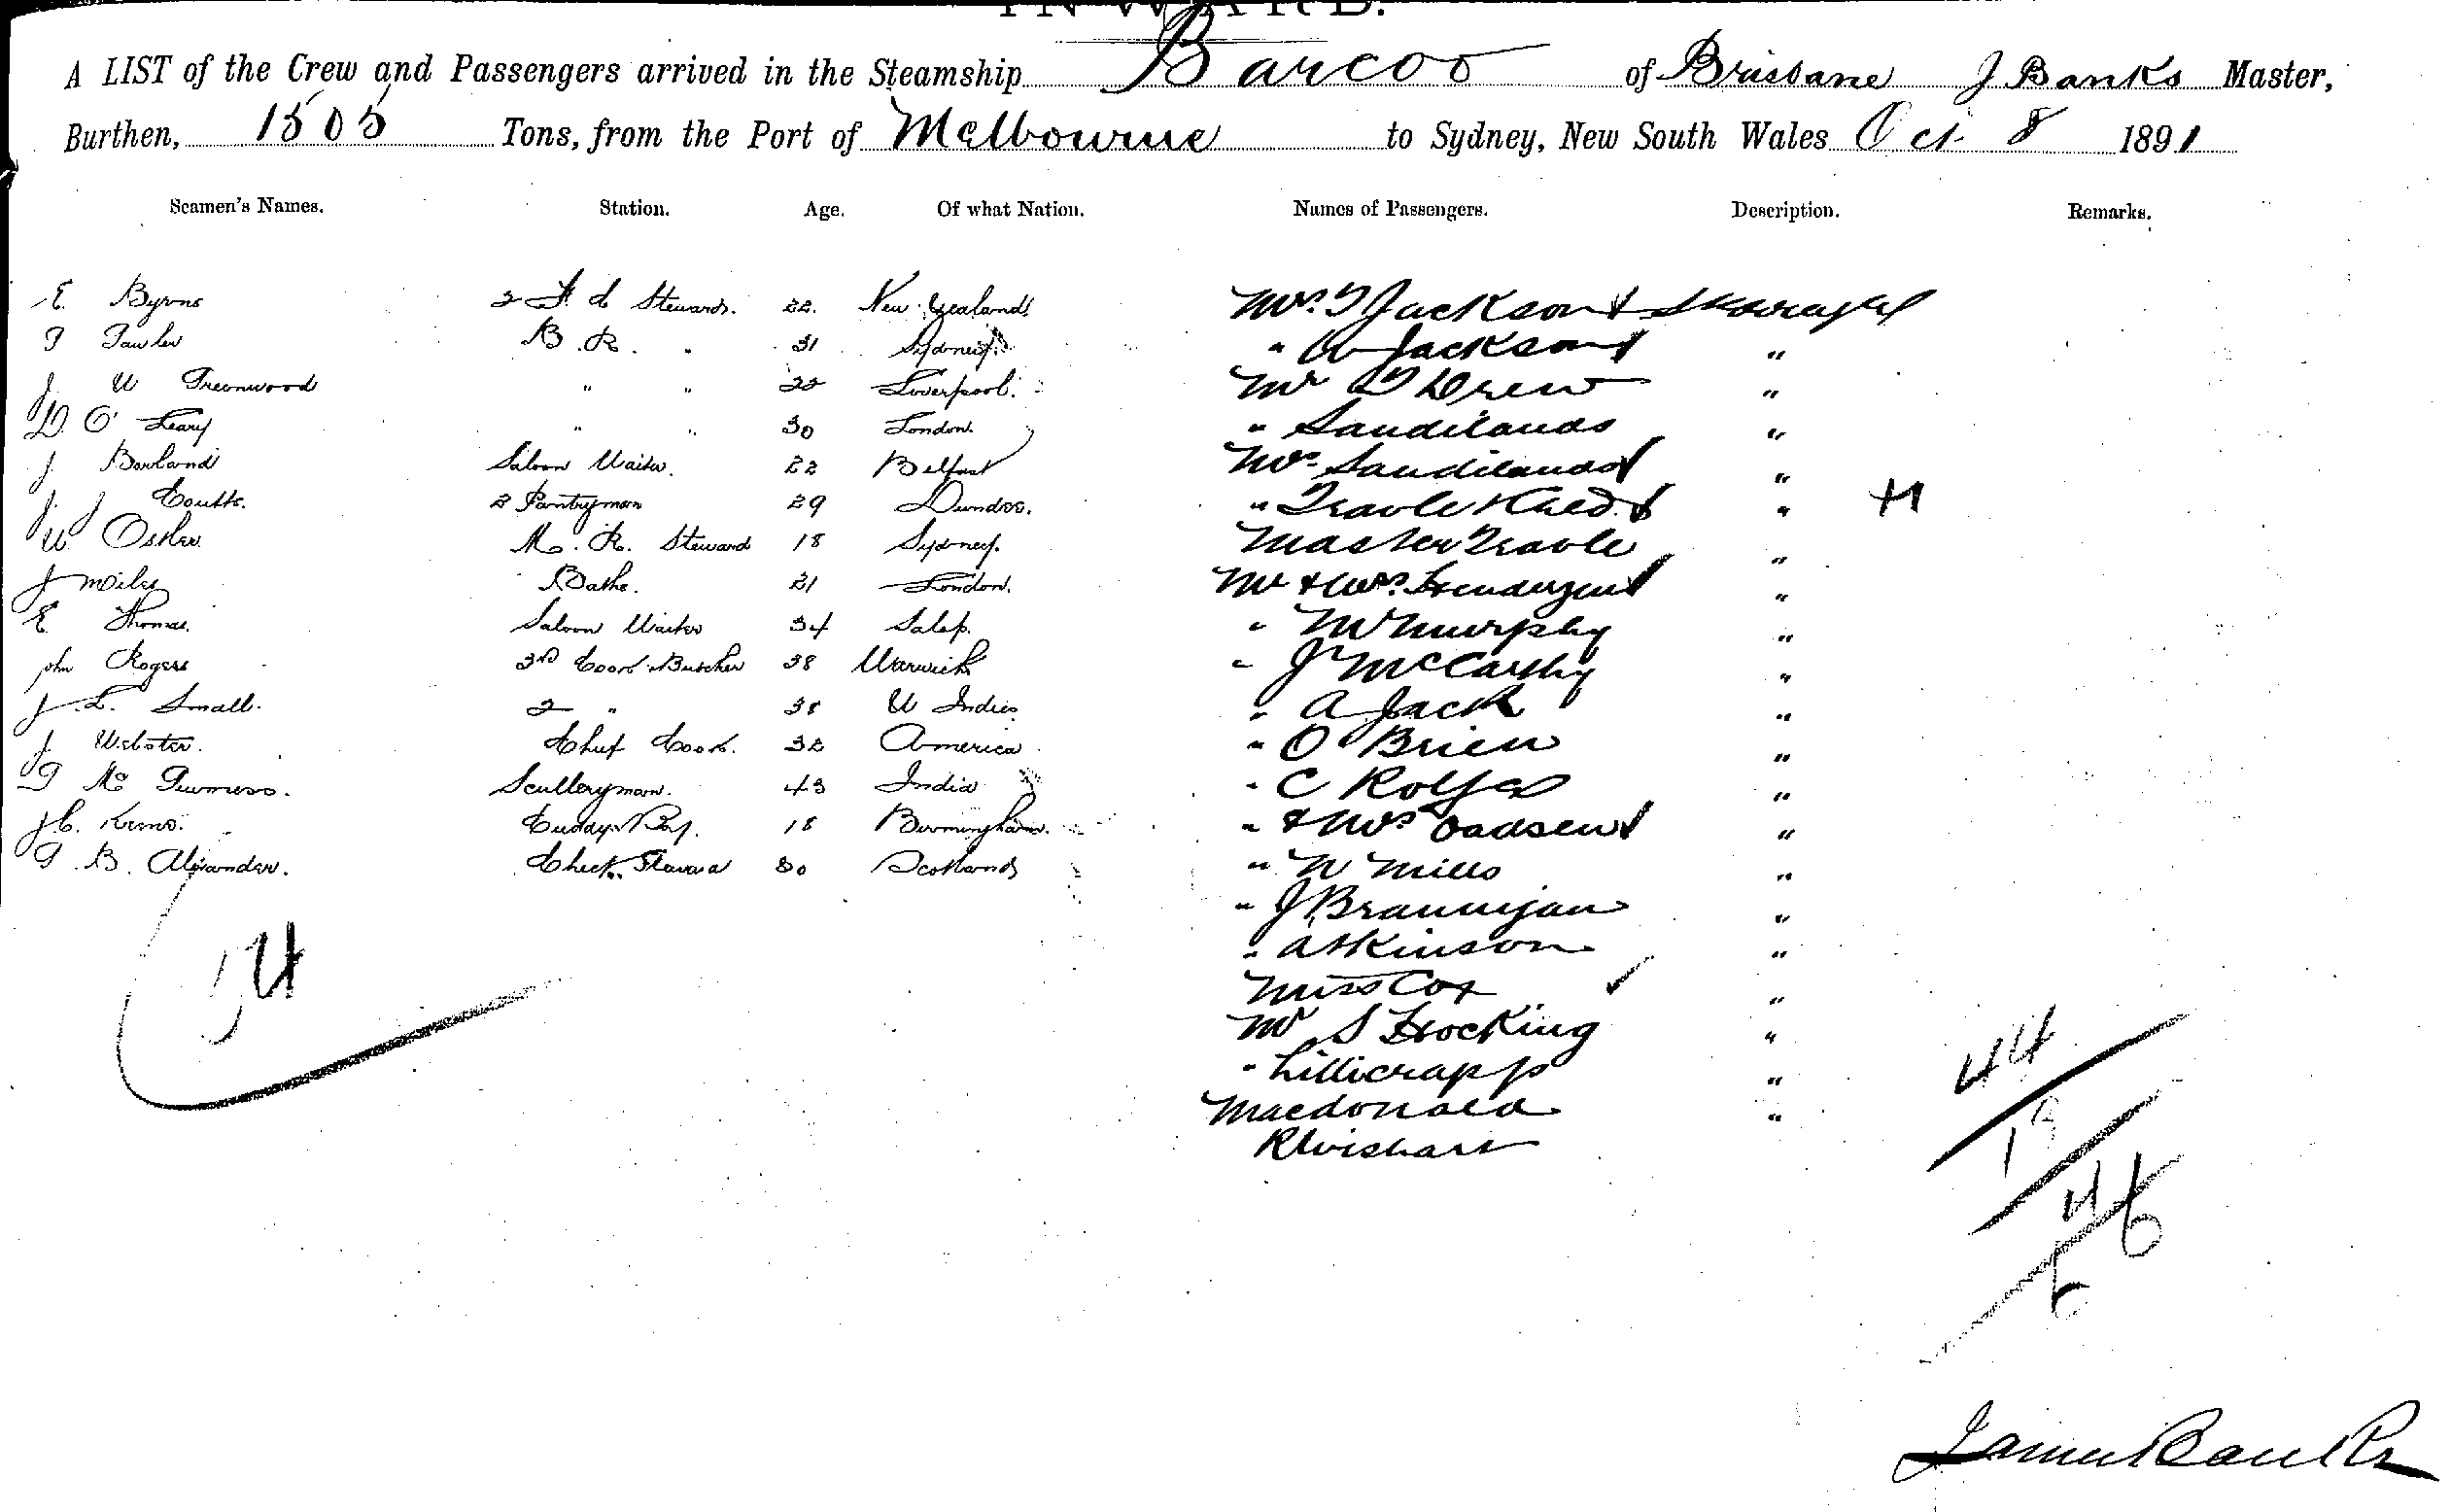 INWARD.
A LIST of the Crew and Passengers arrived in the Steamship Barcoo of Brisbane J Banks Master,
Burthen, 1505 Tons, from the Port of Melbourne to Sydney, New South Wales Oct 8 1891
Seamen's Names. Station. Age. Of what Nation. Names of Passengers. Description. Remarks.
E. Byrne 2nd Stewards. 22. New Zealand Mrs. Jackson
J Fawler B. R. " 31 Sydney. " Jackson "
J. W Greenwood " " 22 Liverpool. Mr Drew "
D. O'Leary " " 30 London. " Sandilands "
J. Borland Saloon Waiter. 22 Belfast Mrs. Sandilands "
J. J Coutts. 2 Pantryman 29 Dundee. " "
W Osker M. R. Steward 18 Sydney. Master "
J Miles Baths. 21 London. Mr & Mrs. "
E Thomas. Saloon Waiter 34 Salop. " M Murphy "
John Rogers 3rd Cook Butcher 38 Warwick " J McCarthy "
J. L. Small. 2 " 38 W Indies " A Jack "
J. Webster. Chief Cook. 32 America " O'Brien "
Mc Sculleryman. 43 India " C Rolfes "
J C. Kerns. Cuddy Boy. 18 Birmingham. " & Mrs Oadsen "
G. B. Alexander. Check Steward 30 Scotland " W Mills "
" J Brannigan "
" Atkinson "
Miss Cox "
Mr S Hocking "
" Lillicrapp "
Macdonald "
R Wishart
14
44
19
46
James Banks